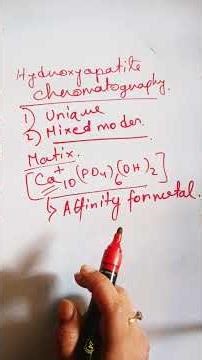 Hydroxyapatite
Chromatography.
1) Unique
2) Mixed modes.
Matix.
[Ca⁺10(PO4)6(OH)2]
↳ Affinity for metal.